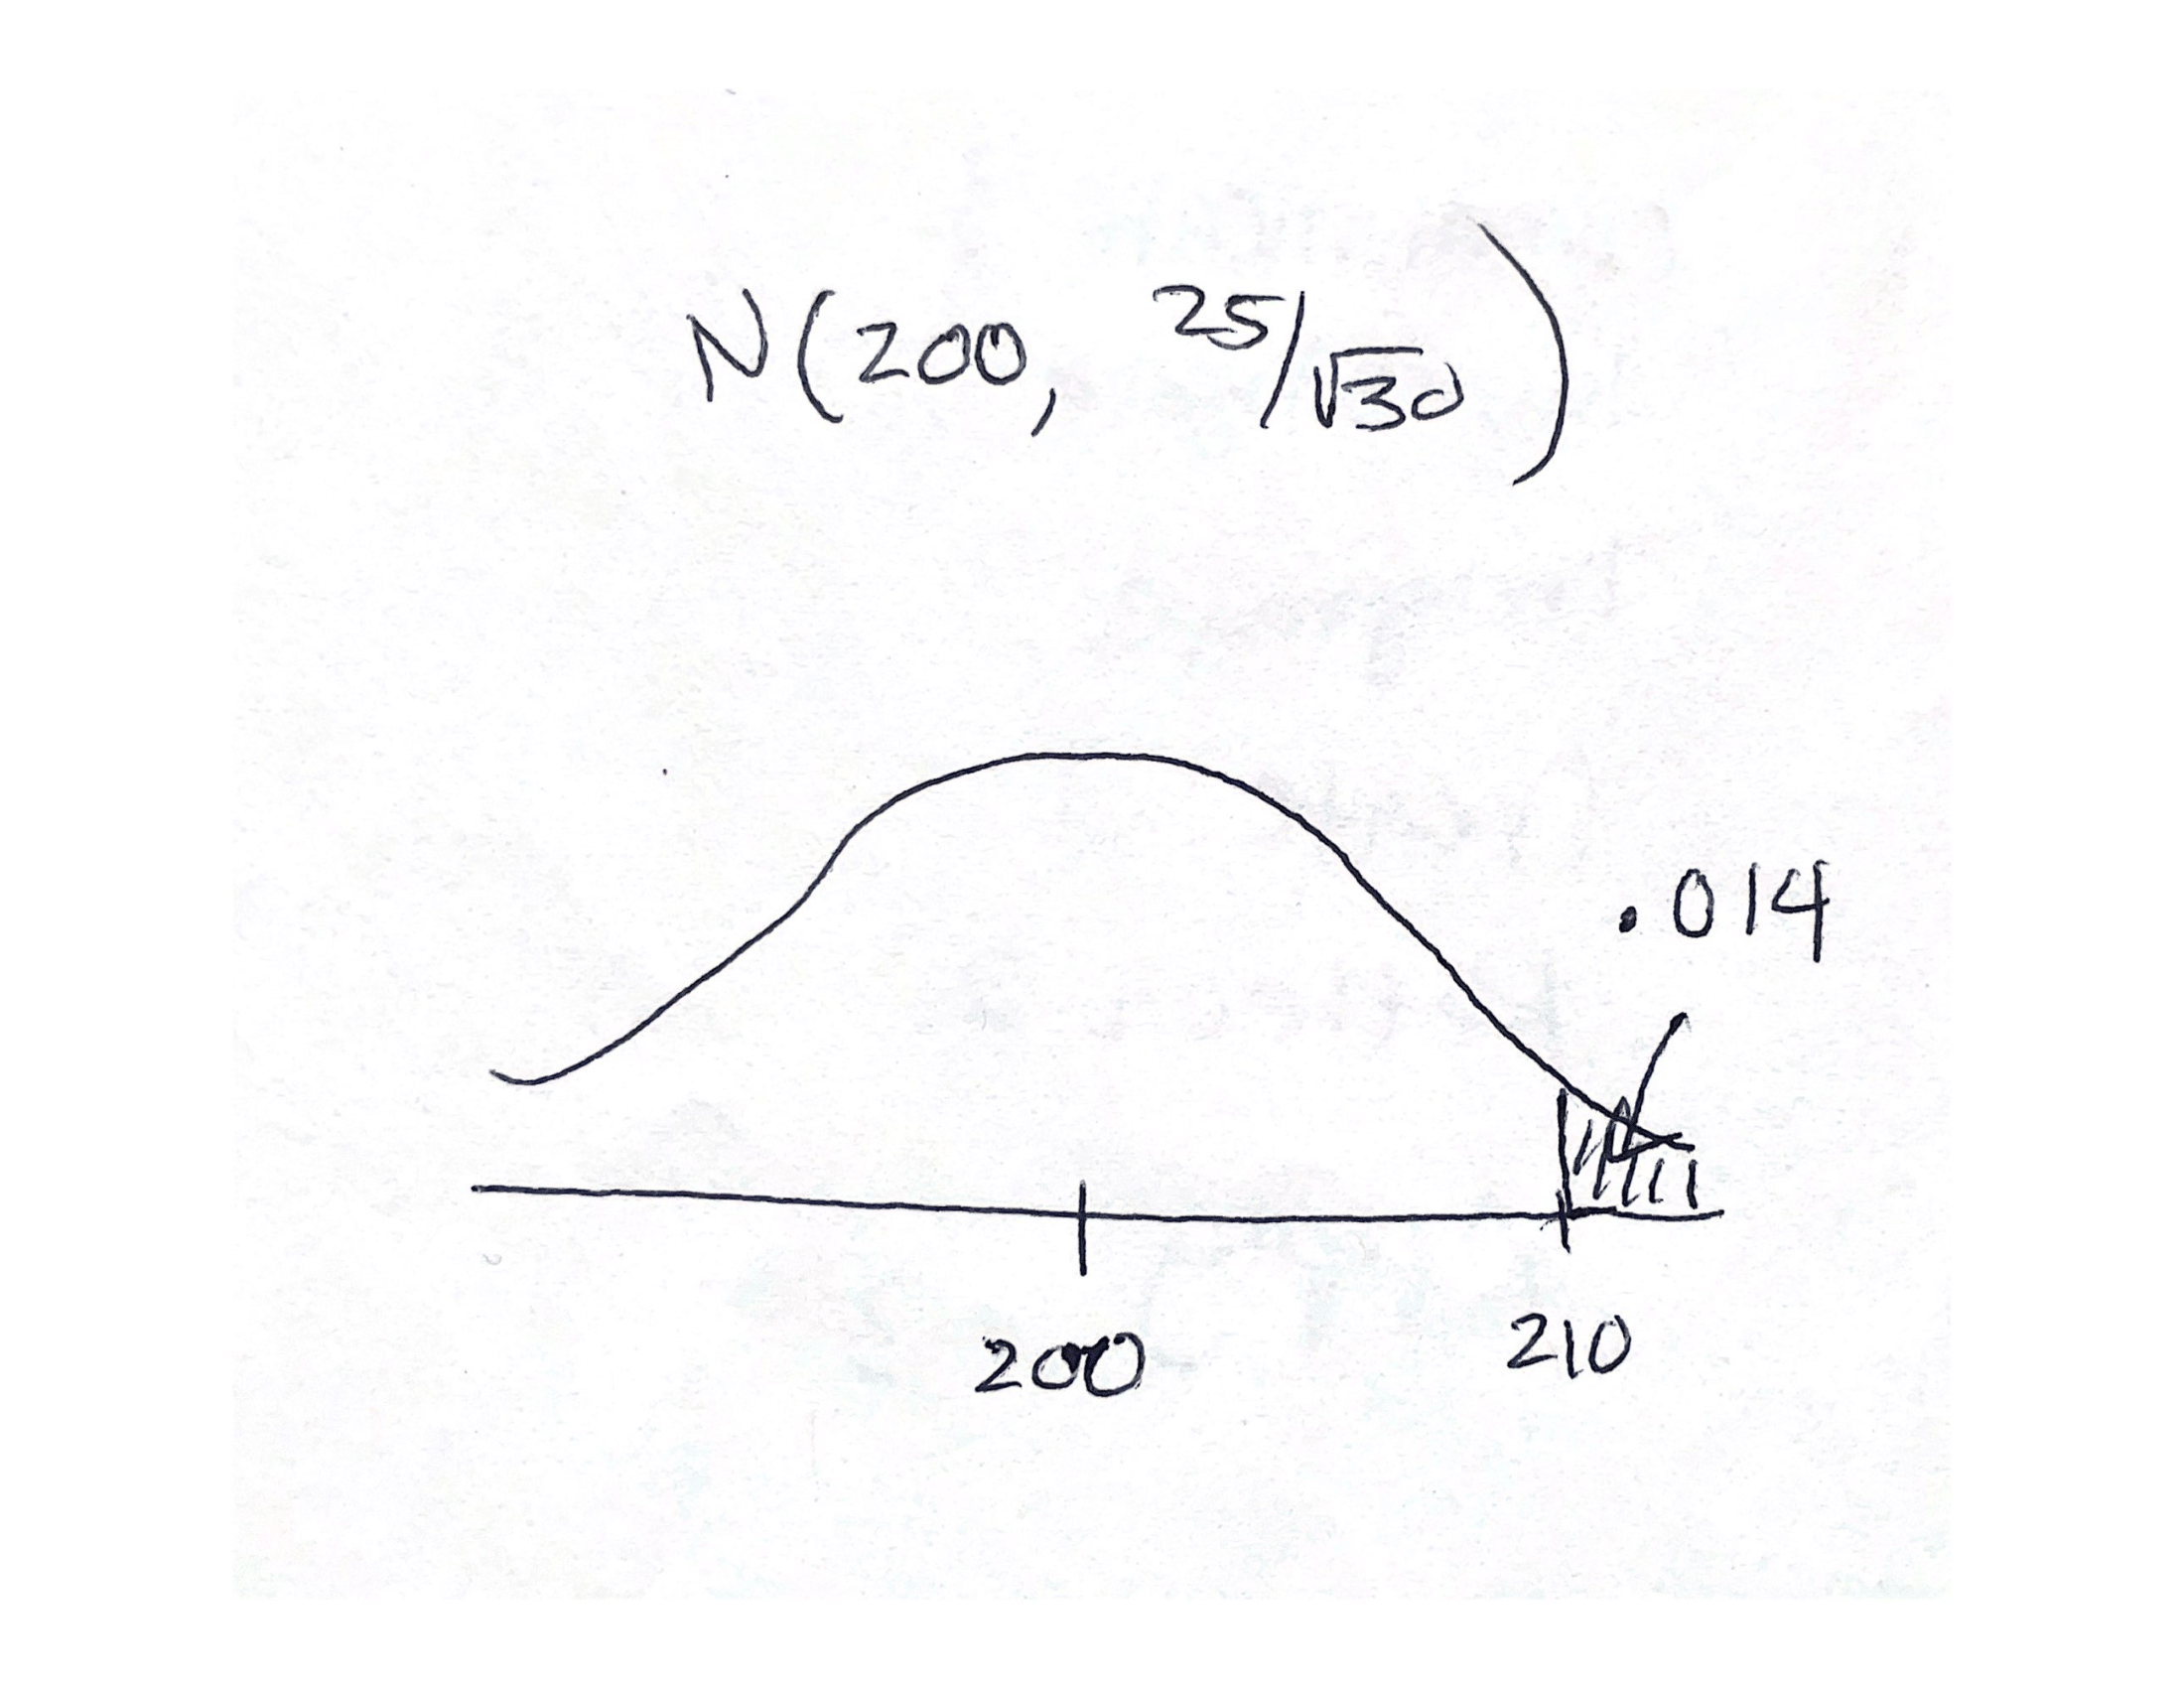 N(200, 25/√30)
.014
200 210